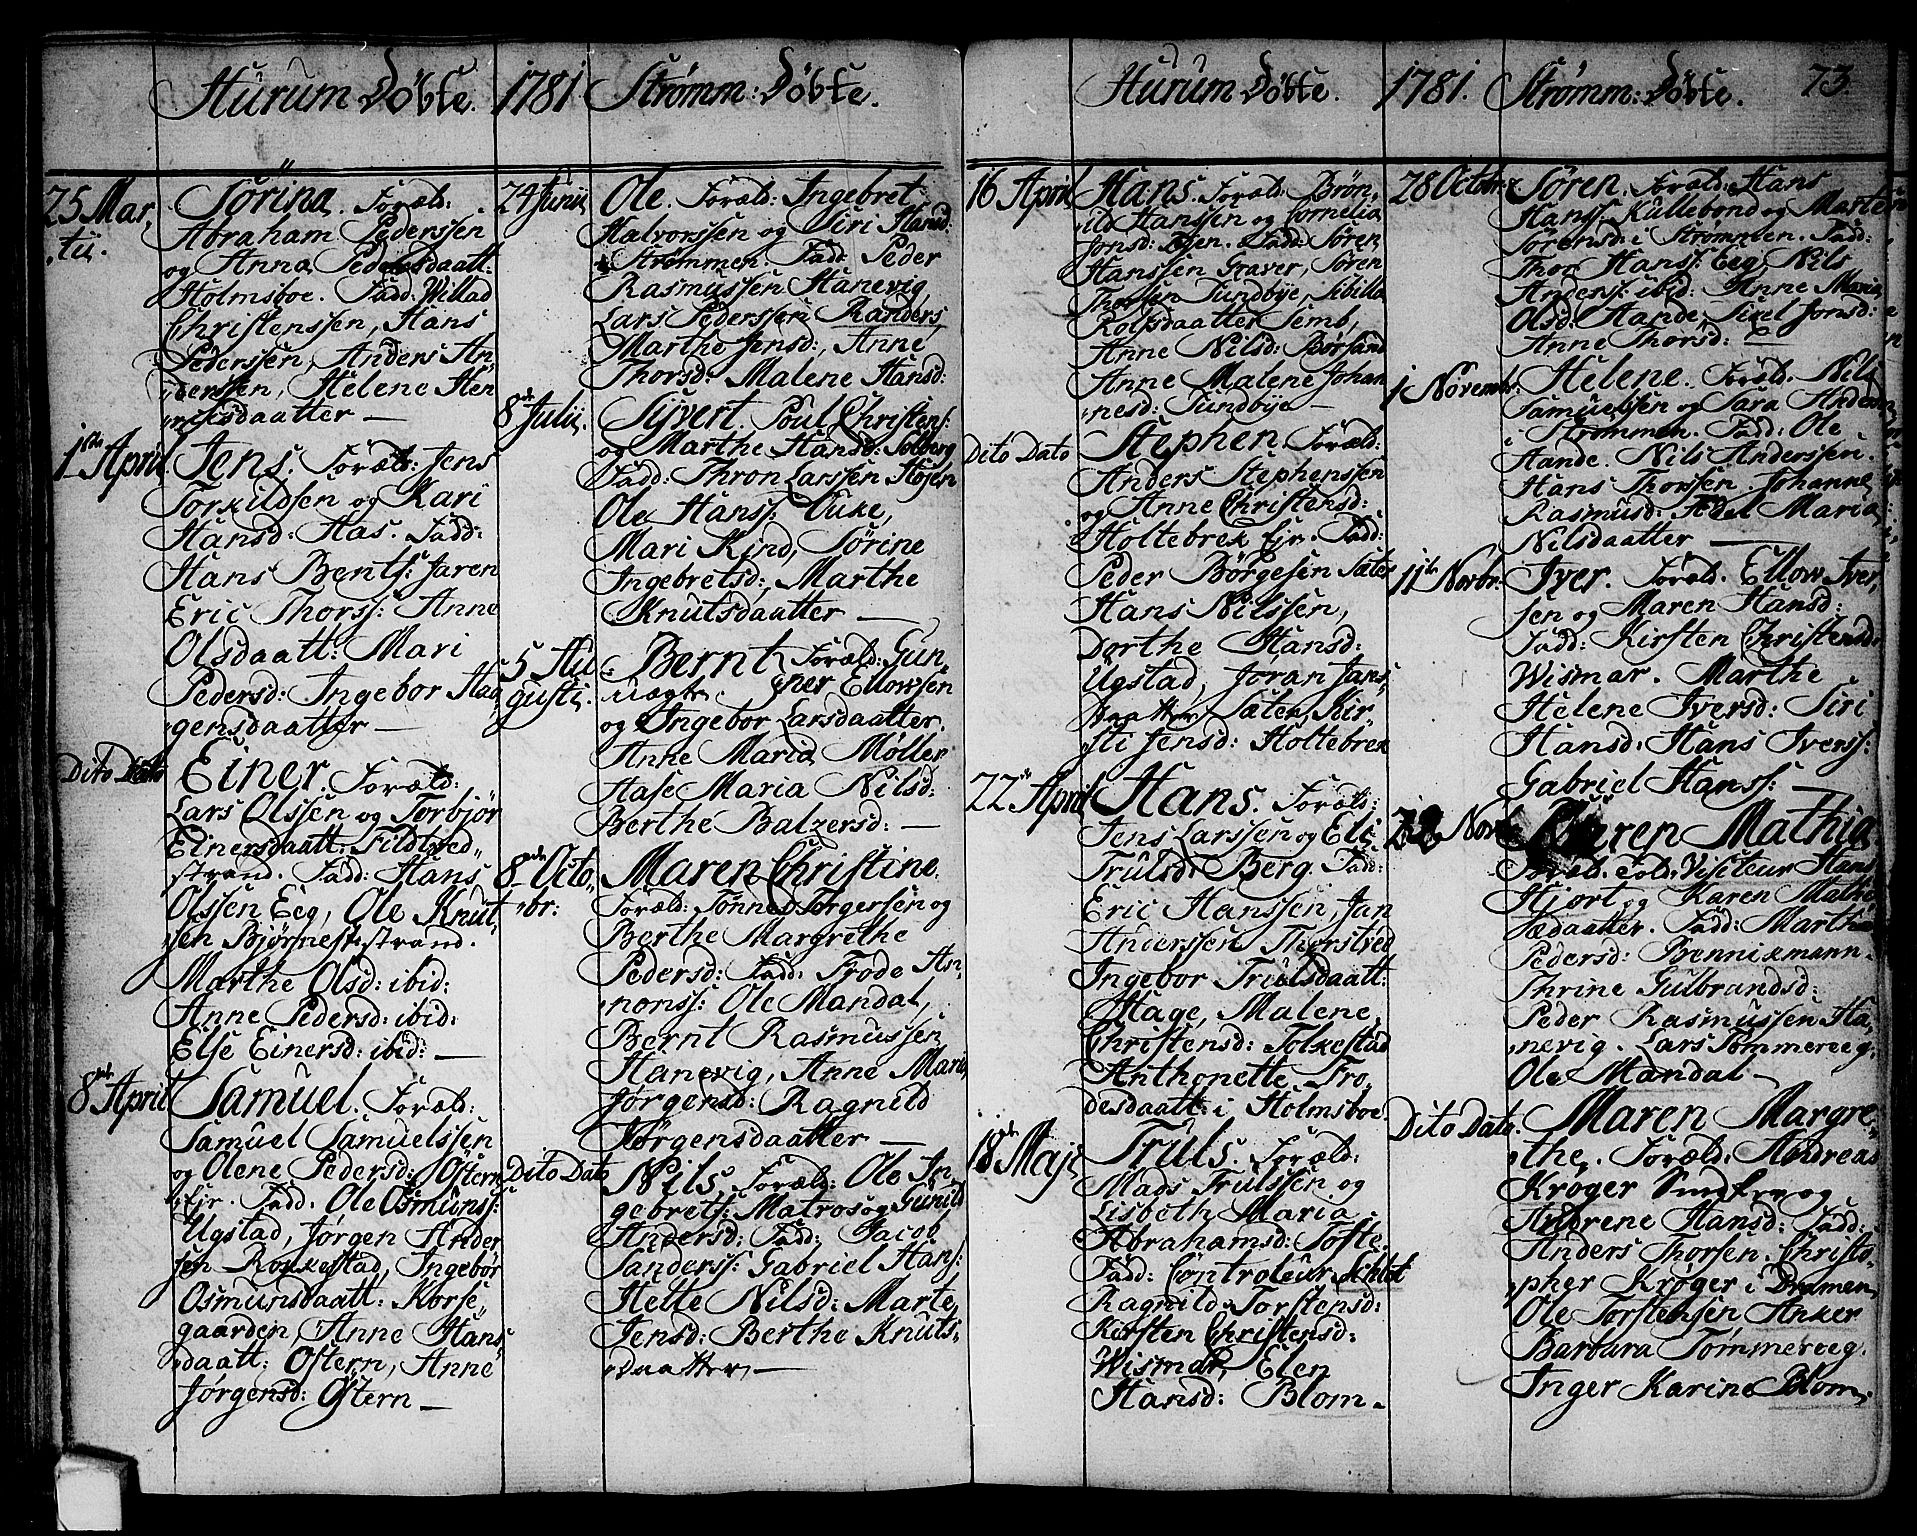 Hurum Döbte. 1781 Strømm: Döbte.
25 Mar,
tii.
Sörina. Foræld:
Abraham Pederssen
og Anna Pedersdaatt:
Holmsboe. Fadd: Willad
Christenssen, Hans
Pederssen, Anders An,
derssen, Helene Hen
richsdaatter —
1ste April
Jens. Foræld: Jens
Torkildsen og Kari
Hansd: Has. Fadd:
Hans Bents: Jaren
Eric Thorss: Anne
Olsdaatt: Mari
Pedersd: Ingebor Haa
gensdaatter —
Dito Dato
Einer. Foræld:
Lars Olssen og Torbjör
Einersdaatt: Fildtved
strand. Fadd: Hans
Olssen Eeg, Ole Knut
sen Bjørnestrand.
Marthe Olsd: ibid:
Anne Pedersd: ibid:
Else Einersd: ibid: —
8de April
Samuel. Foræld:
Samuel Samuelssen
og Olene Pedersd: Östern
Ejr. Fadd. Ole Osmunss:
Ugstad, Jørgen Ander
sen Rokkestad, Ingebör
Osmunsdaatt: Korse,,
gaarden, Anne Hans
daatt: Östern, Anne
Jørgensd: Östern —
24 Junii
Ole. Foræld: Ingebret
Halvorssen og Siri Hansd:
Strømmen. Fadd: Peder
Rasmussen Hanevig,
Lars Pederssen Randers,
Marthe Jensd:, Anne
Thorsd: Malene Hansd:
8de Julii.
Syvert. Poul Christens:
og Marthe Hansd: Solberg
Fadd: Thron Larssen Stösen
Ole Hanss: Tuke,
Mari Kind, Sörine
Ingebretsd:, Marthe
Knutsdaatter —
5 Au
gusti.
Bernt Foræld: Gun,,
uægte. ner Ellowsen
og Ingebor Larsdaatter.
Anne Maria Möller
Hase Maria Nilsd:
Berthe Balzersd: —
8de Octo,,
br:
Maren Christine.
Foræld: Tönnes Torgersen og
Berthe Margrethe
Pedersd: Fadd: Frode An
nonss: Ole Mandal,
Bernt Rasmussen
Hanevig, Anne Marie
Jørgensd: Ragnild
Jørgensdaatter —
Dito Dato
Nils, Foræld: Ole In
gebrets: Matros og Gunild
Andersd: Fadd: Jacob
Sanderss: Gabriel Hans:
Helte Nilsd: Marte
Jensd: Berthe Knuts,,
daatter, —
Hurum Döbte. 1781. Strømm: Döbte. 73.
16 April
Hans. Foræld: Brön,
ild Hanssen og Cornelia
Jonsd: Fadd: Sören
Hanssen Graver, Sören
Thorssen Sundbye, Sibilla
Rolfsdaatter Semb,
Anne Nilsd: Borsand
Anne Malene Johan
nesd: Sundbye —
Dito Dato
Stephen. Foræld:
Anders Stephenssen
og Anne Christensd:
Holtebrek Ejr. Fadd:
Peder Börgesen Sæter
Hans Nilssen,
Dorthe Hansd:
Ugstad, Jøran Jans,,
daatter Sæter, Kir,,
sti Jensd: Holtebrek
22 April
Hans. Foræld:
Jens Larssen og Eli
Trulsd: Berg. Fadd:
Eric Hanssen, Jan
Anderssen Thorstved
Ingebor Trulsdaatt:
Hage, Malene
Christensd: Folkestad
Anthonette Fro
desdaatt: i Holmsboe
18de Maji
Truls. Foræld:
Mads Trulssen og
Lisbeth Maria
Abrahamsd: Tofte.
Fadd: Controleur Schlöt
Ragnild Torstensd:
Kirsten Christensd:
Wismar, Elen
Hansd: Blom —
28 Octobr:
Sören. Foræld: Hans
Hanss: Kullebond og Marte
Sörensd: i Strømmen. Fadd:
Thor Hanss: Eeg, Nils
Anderss: ibid: Anne Maria
Olsd: Hande, Sixel Jonsd:
Anne Thorsd:
1 Novembr:
Helene. Foræld. Nils
Samuelssen og Sara Anders
Strømmen. Fadd: Ole
Hande. Nils Anderssen.
Hans Thorssen, Johanne
Rasmusd: Adel Maria
Nilsdaatter —
11te Novbr:
Iver. Foræld. Ellow Iver,
sen og Maren Hansd:
Fadd: Kirsten Christensd:
Wismar. Marthe
Helene Iversd: Siri
Hansd: Hans Iverss:
Gabriel Hanss: —
Novbr
Karen Mathia.
Foræld. Told-Visiteur Hans
Hjort og Karen Mathi
asdaatter. Fadd: Marthe
Pedersd: Bennikmann.
Thrine Gulbrandsd:
Peder Rasmussen Ha,
nevig. Lars Tømmereeg,
Ole Mandal —
Dito Dato.
Maren Margre,,
the. Foræld: Andreas
Kröger og
Andrene Hansd: Fadd:
Anders Thorsen. Christo,
pher Kröger i Dramen
Ole Torstensen Anker
Barbara Tømmereeg.
Inger Karine Blom,